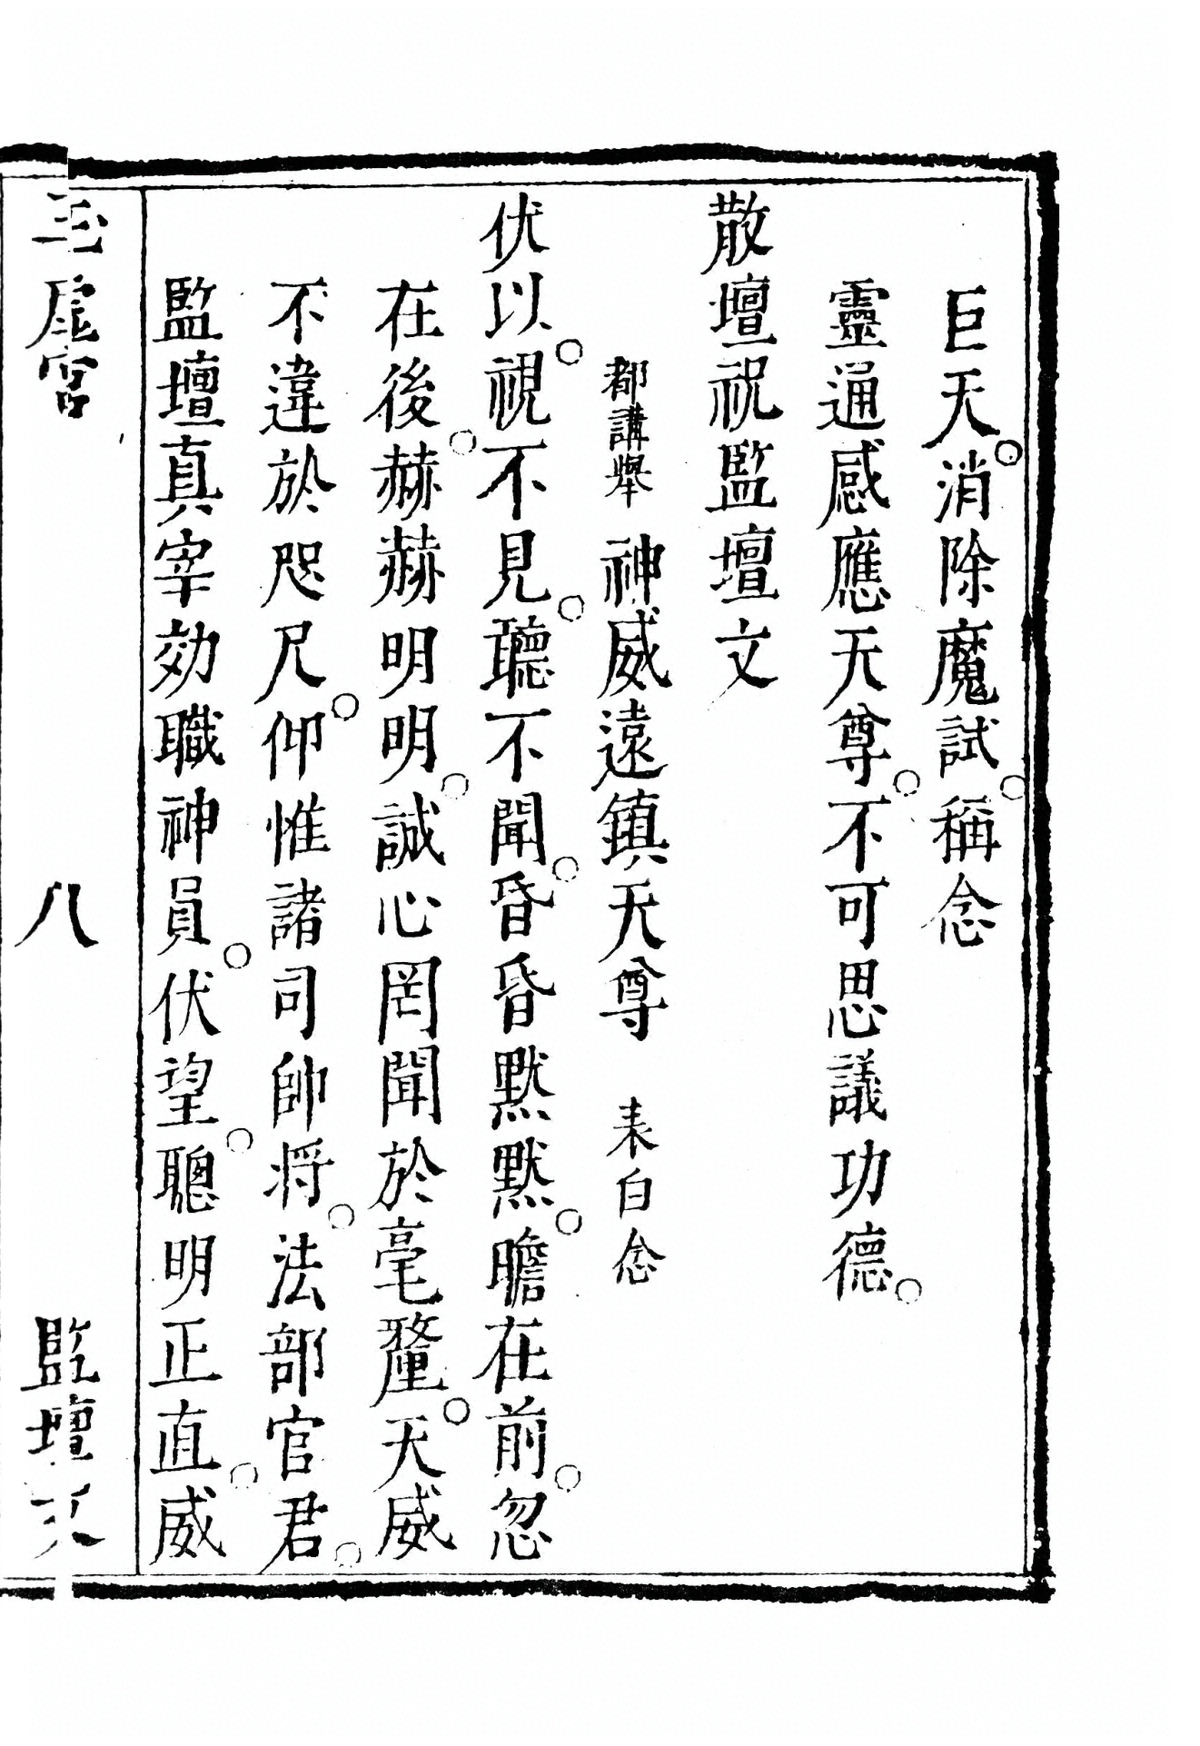 巨天。消除魔試。稱念
靈通感應天尊。不可思議功德。
散壇祝監壇文
都講舉　神威遠鎮天尊　表白念
伏以。視不見。聽不聞。昏昏默默。瞻在前。忽
在後。赫赫明明。誠心罔聞於毫釐。天威
不違於咫尺。仰惟諸司帥將。法部官君。
監壇真宰効職神員。伏望。聰明正直。威
玉虛宮　八　監壇文